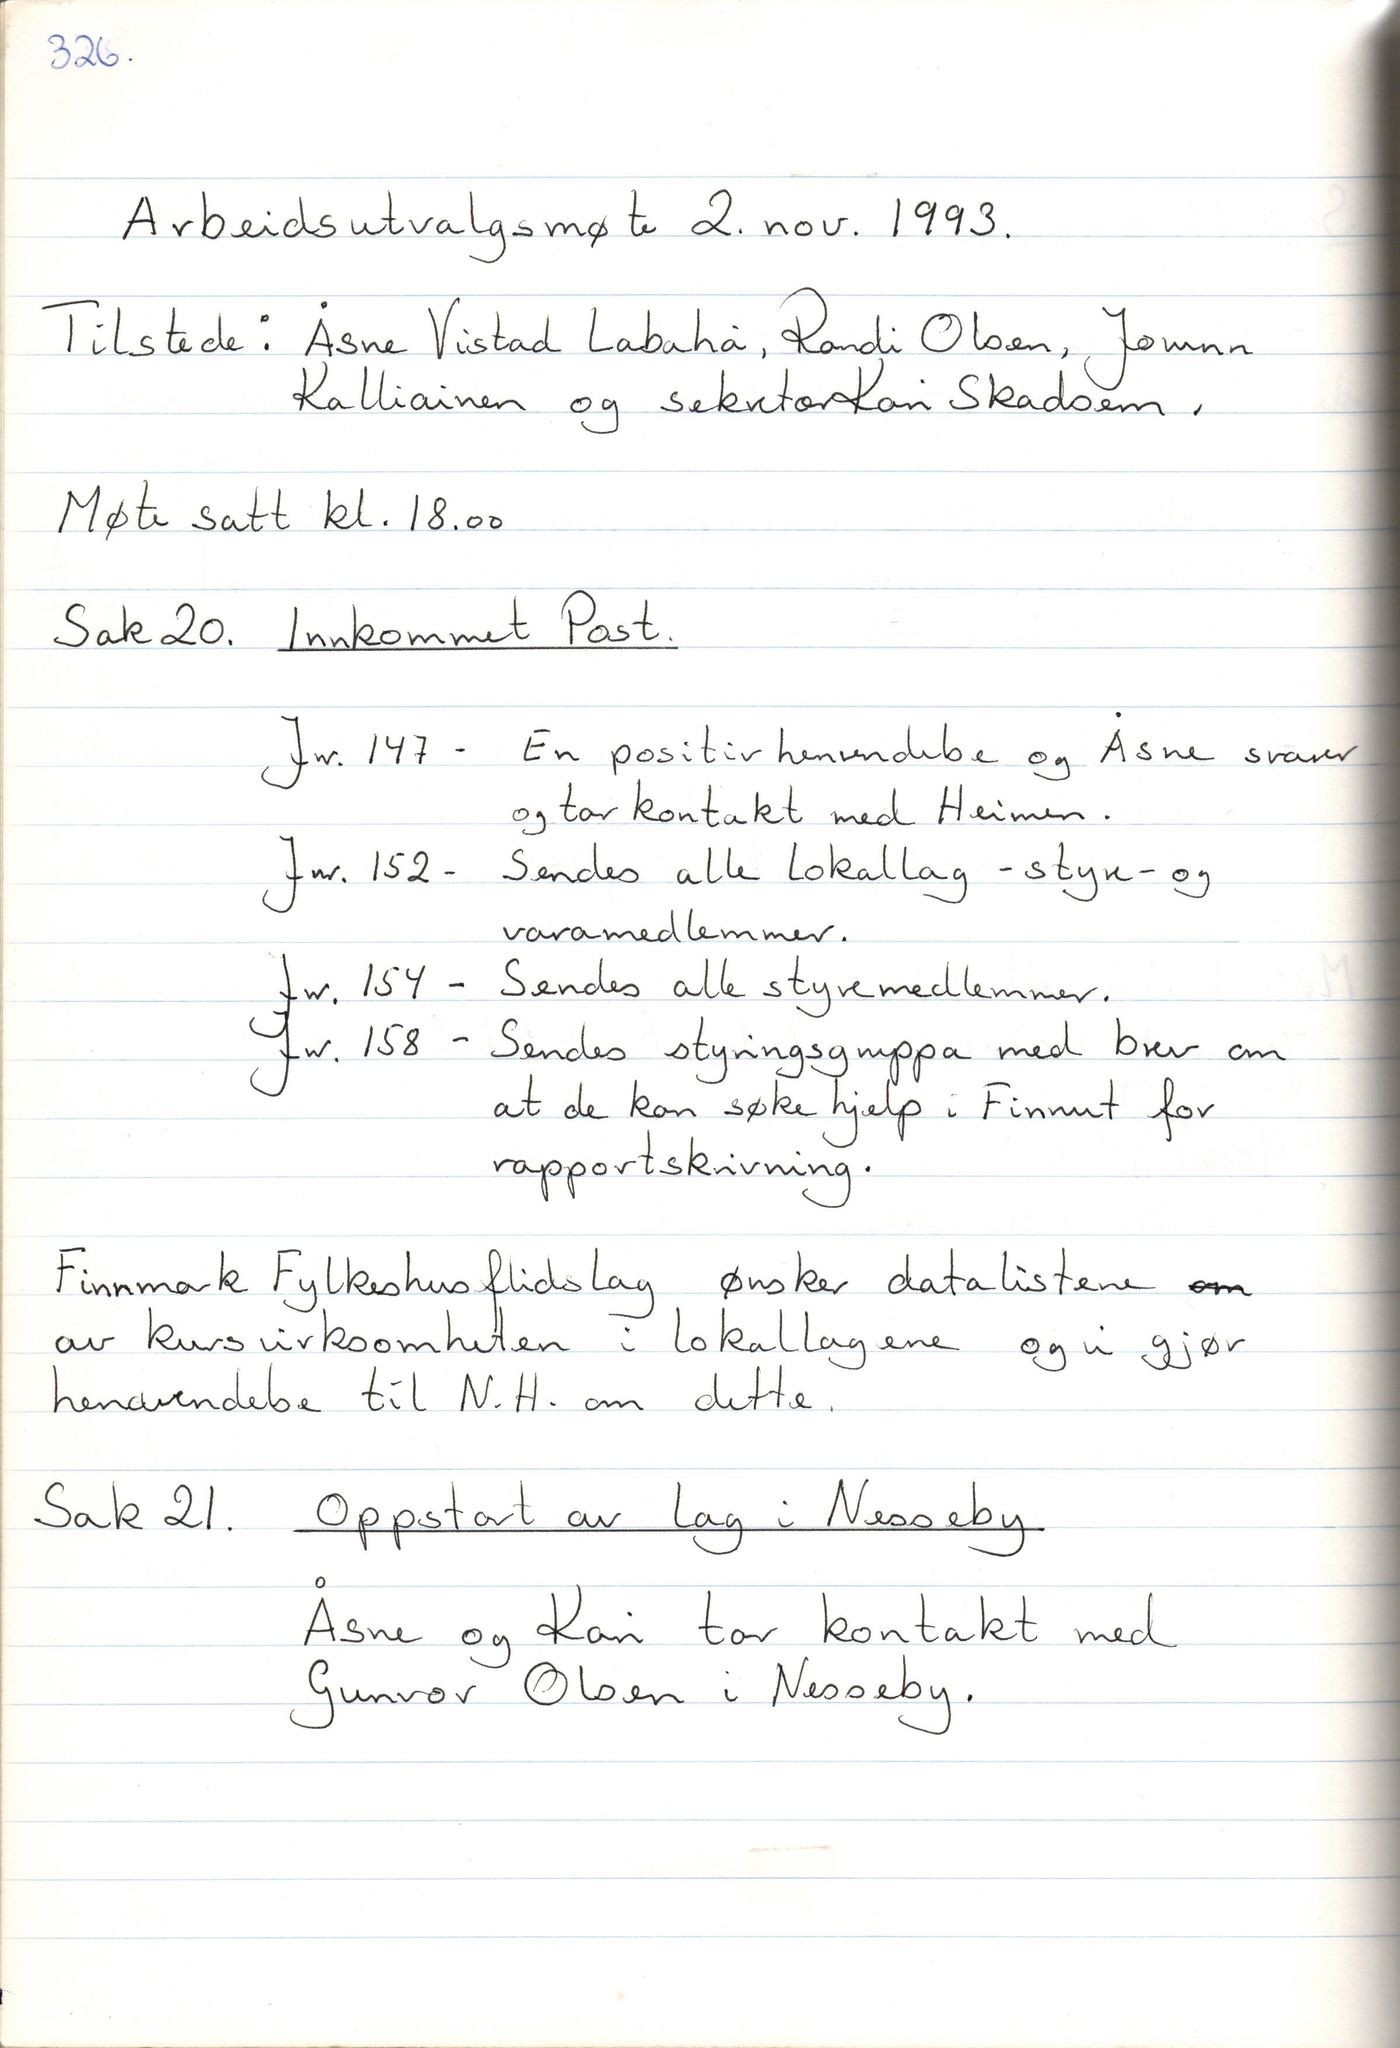 326.
Arbeidsutvalgsmøte 2. nov. 1993.
Tilstede: Åsne Vistad Labahå, Randi Olsen, Jorunn
Kalliainen og sekretær Kari Skadsem.
Møte satt kl. 18.00
Sak 20. Innkommet Post.
Jnr. 147 - En positiv henvendelse og Åsne svarer
og tar kontakt med Heimen.
Jnr. 152 - Sendes alle lokallag - styre- og
varamedlemmer.
Jnr. 154 - Sendes alle styremedlemmer.
Jnr. 158 - Sendes styringsgruppa med brev om
at de kan søke hjelp i Finnut for
rapportskrivning.
Finnmark Fylkeshusflidslag ønsker datalistene om
av kursvirksomheten i lokallagene og vi gjør
henvendelse til N.H. om dette.
Sak 21. Oppstart av lag i Nesseby
Åsne og Kari tar kontakt med
Gunvor Olsen i Nesseby.